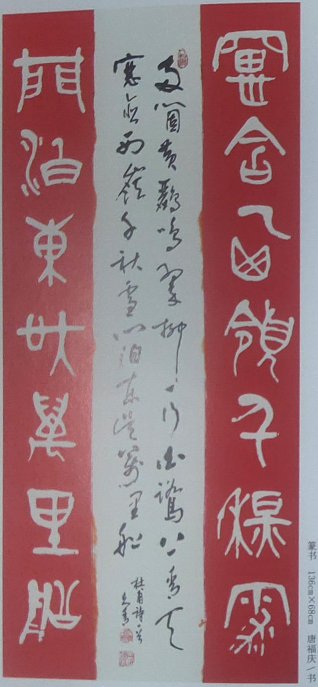 窗含西領千秋雪
两箇黄鸝鳴翠柳一行白鷺上青天
窓含西嶺千秋雪门泊东吴萬里船
杜甫詩
門泊東吳萬里船
篆书 136cm×68cm 唐福庆/书